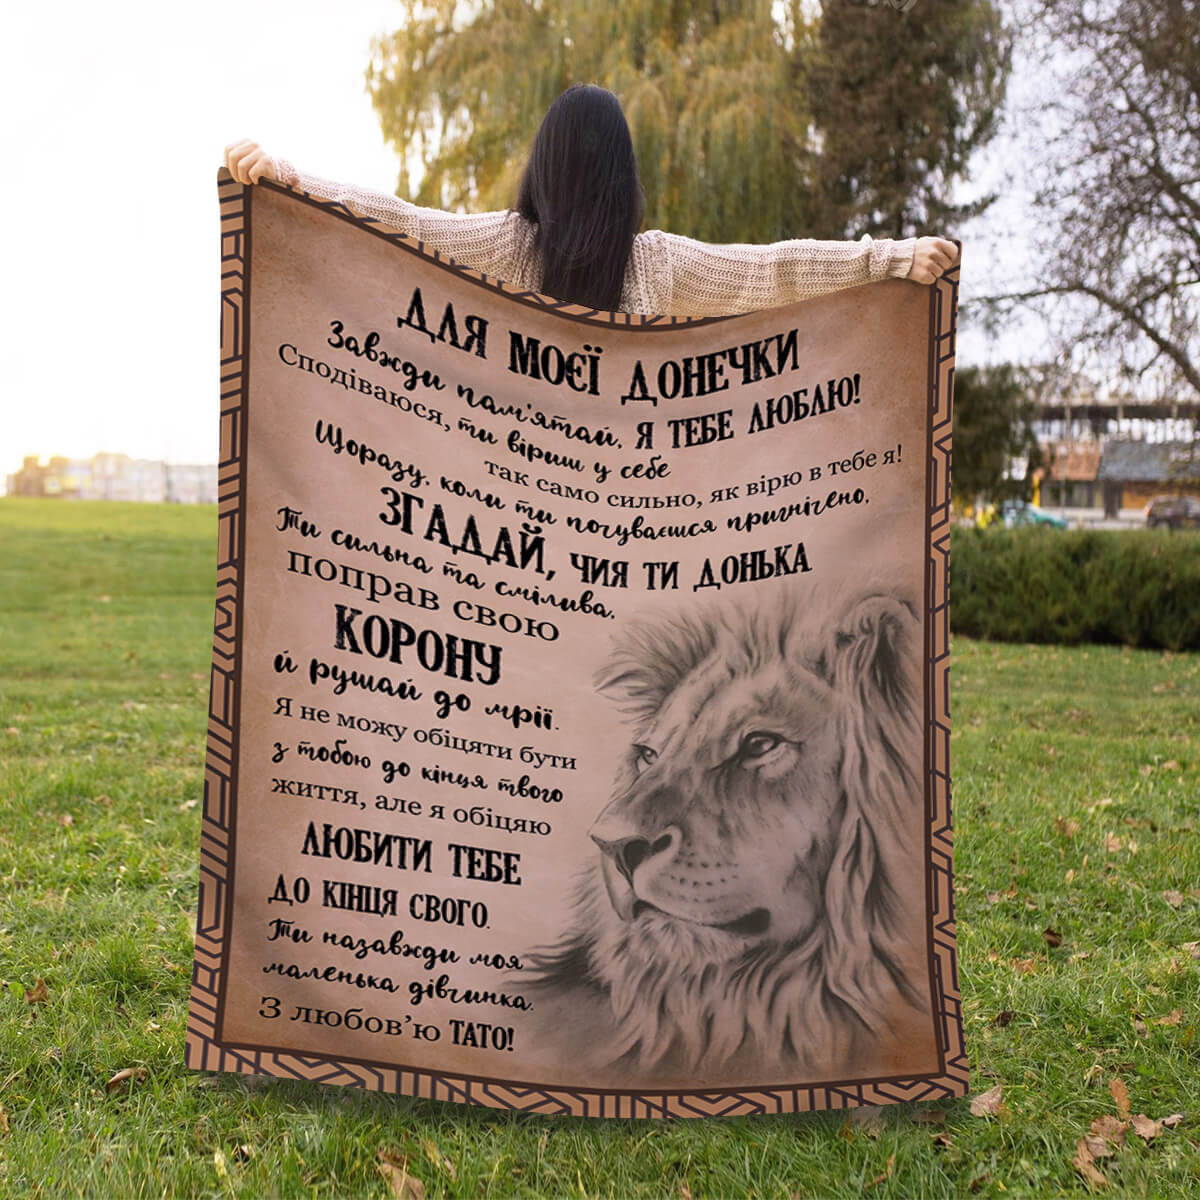 ДЛЯ МОЄЇ ДОНЕЧКИ
Завжди пам'ятай, Я ТЕБЕ ЛЮБЛЮ!
Сподіваюся, ти віриш у себе
так само сильно, як вірю в тебе я!
Щоразу, коли ти почуваєшся пригнічено,
ЗГАДАЙ, ЧИЯ ТИ ДОНЬКА
Ти сильна та смілива,
поправ свою
КОРОНУ
й рушай до мрії.
Я не можу обіцяти бути
з тобою до кінця твого
життя, але я обіцяю
ЛЮБИТИ ТЕБЕ
ДО КІНЦЯ СВОГО.
Ти назавжди моя
маленька дівчинка.
З любов'ю ТАТО!